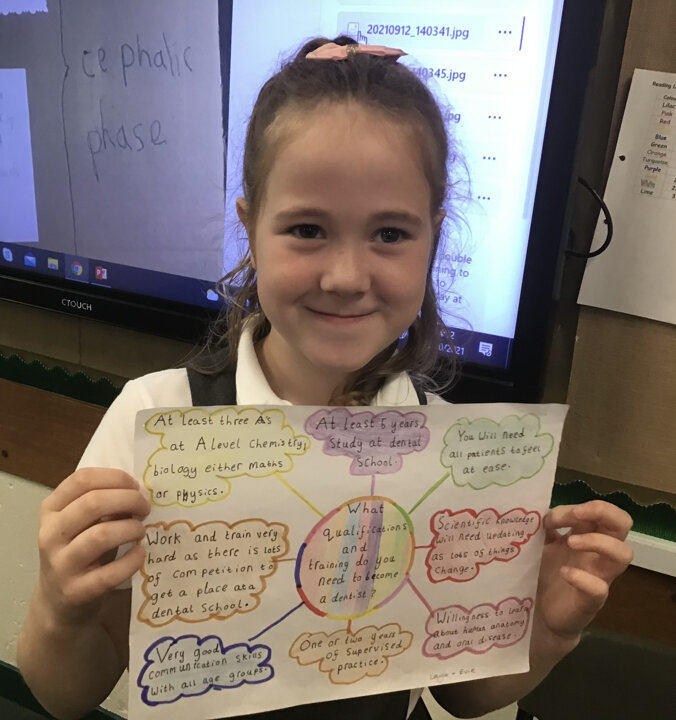 cephalic
phase
20210912_140341.jpg
140345.jpg
pg
double
ing to
to
ay at
2021
CTOUCH
Reading L
Colou
Lilac
Pink
Red
Blue
Green
Orange
Turquoise
Purple
White
Lime
At least three A's
at A level Chemistry,
biology either maths
or physics.
At least 5 years
Study at dental
School.
You Will need
all patients to feel
at ease.
Work and train very
hard as there is lots
of competition to
get a place at a
dental School.
What
qualifications
and
training do you
need to become
a dentist?
Scientific knowledge
will need updating
as lots of things
Change.
Very good
communication skills
with all age groups.
One or two years
of supervised
practice.
Willingness to learn
about human anatomy
and oral disease.
Evie